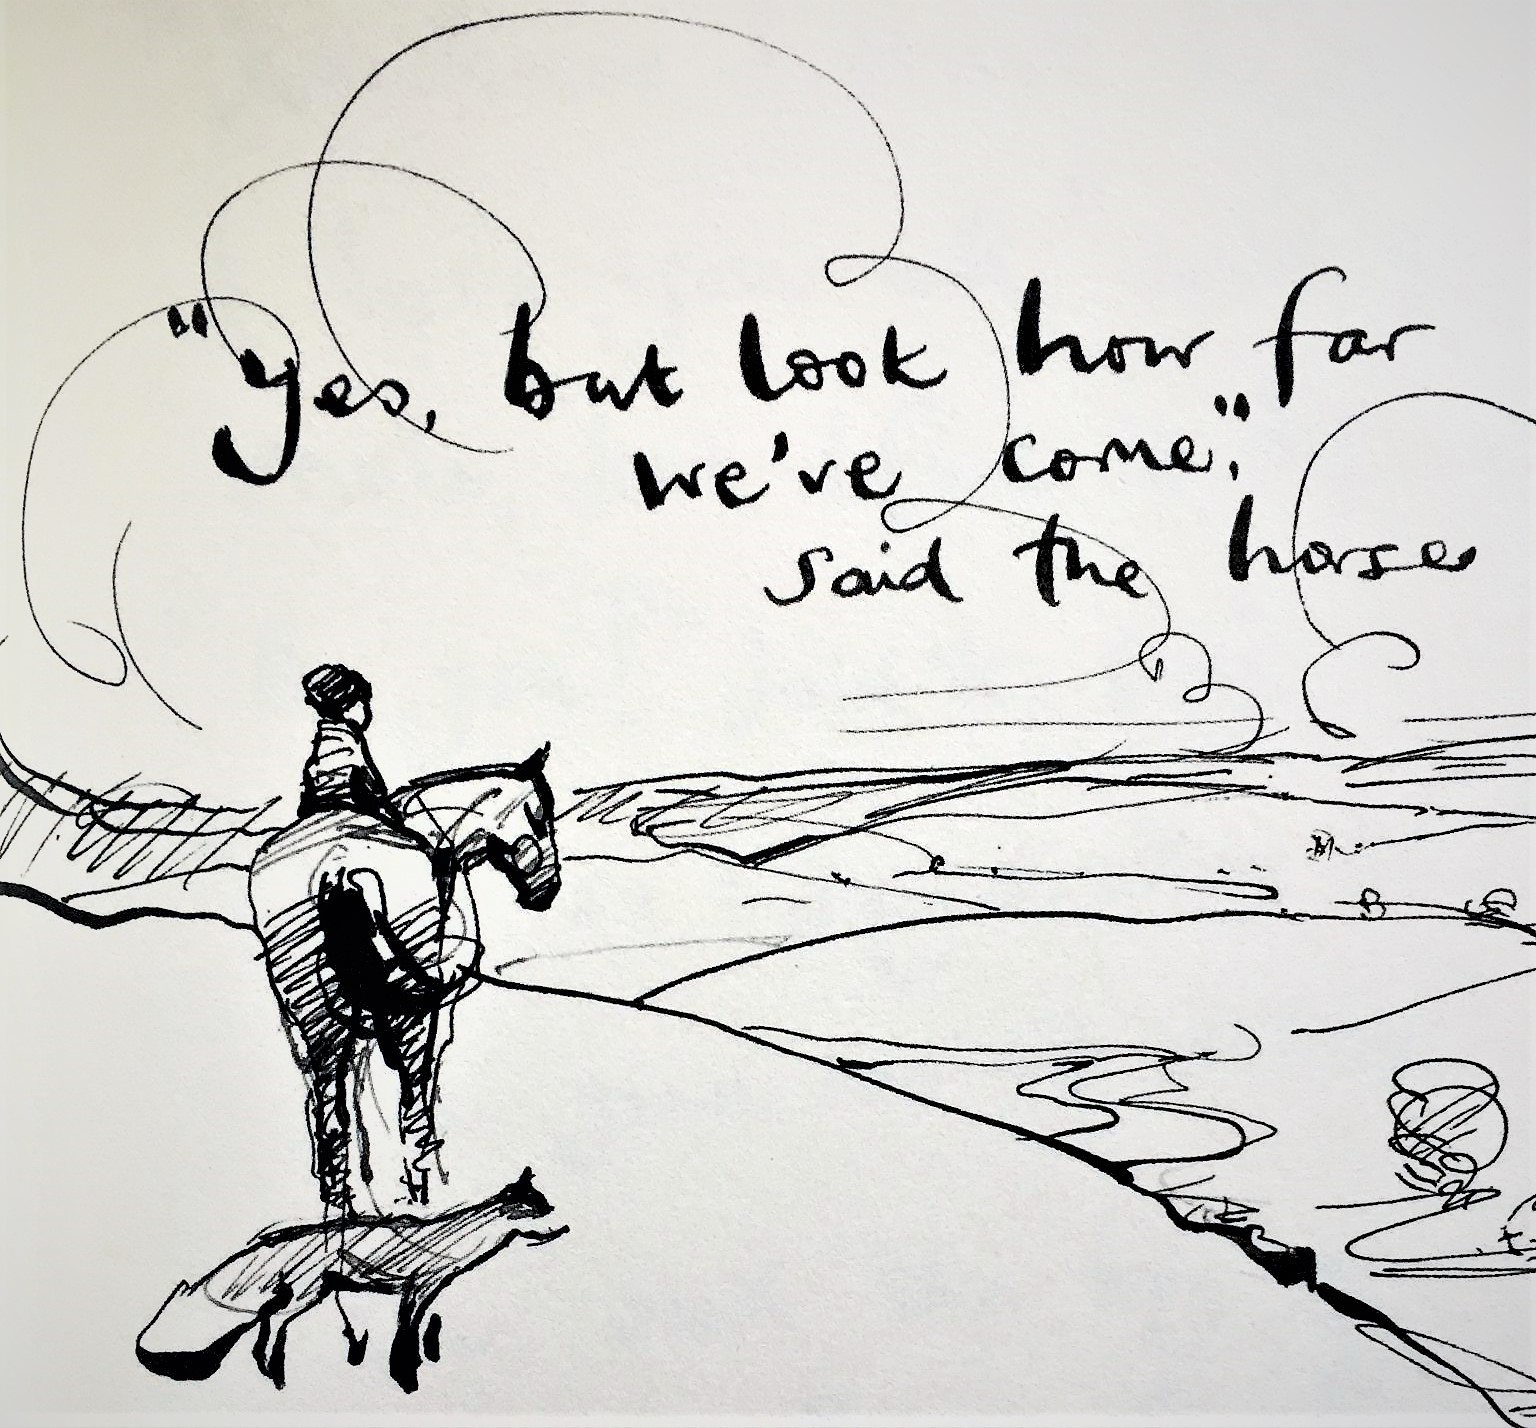 "Yes, but look how far
we've come."
said the horse